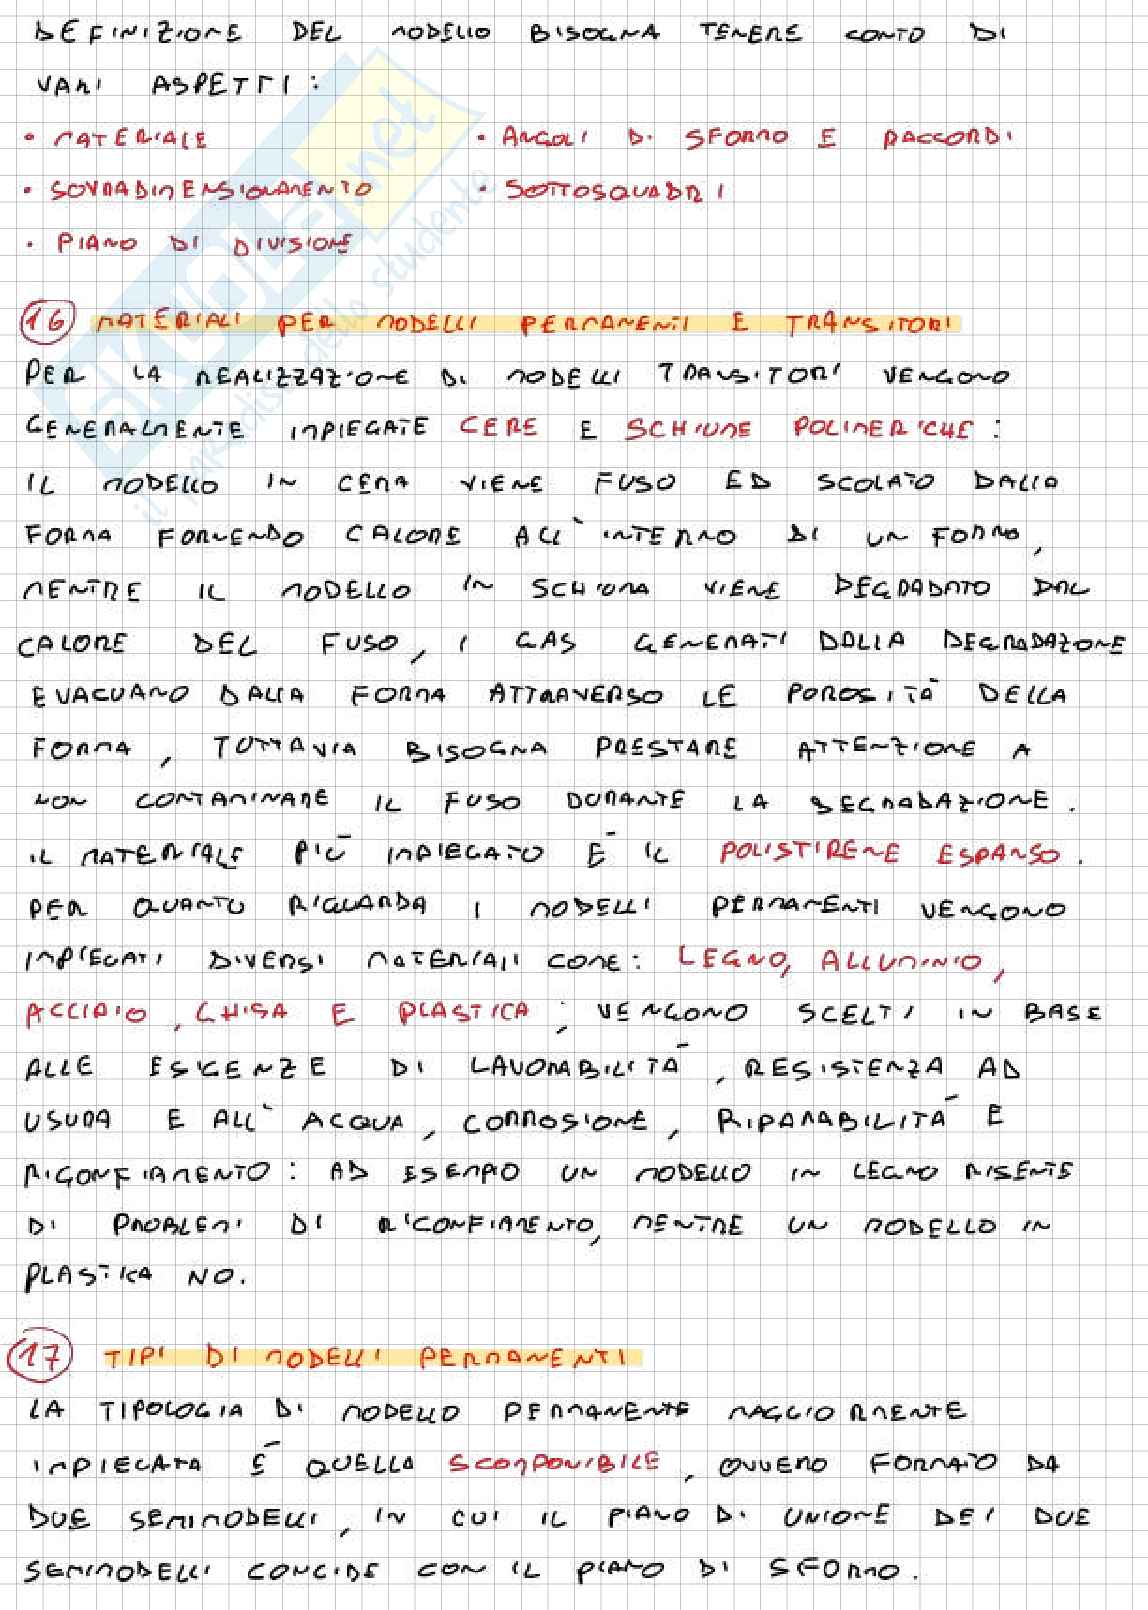 DEFINIZIONE DEL MODELLO BISOGNA TENERE CONTO DI
VARI ASPETTI:
• MATERIALE • ANGOLI DI SFORMO E RACCORDI
• SOVRADIMENSIONAMENTO • SOTTOSQUADRI
• PIANO DI DIVISIONE
SKUOLA.net
il paradiso dello studente
16 MATERIALI PER MODELLI PERMANENTI E TRANSITORI
PER LA REALIZZAZIONE DI MODELLI TRANSITORI VENGONO
GENERALMENTE IMPIEGATE CERE E SCHIUME POLIMERICHE:
IL MODELLO IN CERA VIENE FUSO ED SCOLATO DALLA
FORMA FORNENDO CALORE ALL'INTERNO DI UN FORNO,
MENTRE IL MODELLO IN SCHIUMA VIENE DEGRADATO DAL
CALORE DEL FUSO, I GAS GENERATI DALLA DEGRADAZIONE
EVACUANO DALLA FORMA ATTRAVERSO LE POROSITÀ DELLA
FORMA, TUTTAVIA BISOGNA PRESTARE ATTENZIONE A
NON CONTAMINARE IL FUSO DURANTE LA DEGRADAZIONE.
IL MATERIALE PIÙ IMPIEGATO È IL POLISTIRENE ESPANSO.
PER QUANTO RIGUARDA I MODELLI PERMANENTI VENGONO
IMPIEGATI DIVERSI MATERIALI COME: LEGNO, ALLUMINIO,
ACCIAIO, GHISA E PLASTICA; VENGONO SCELTI IN BASE
ALLE ESIGENZE DI LAVORABILITÀ, RESISTENZA AD
USURA E ALL'ACQUA, CORROSIONE, RIPARABILITÀ E
RIGONFIAMENTO: AD ESEMPIO UN MODELLO IN LEGNO RISENTE
DI PROBLEMI DI RIGONFIAMENTO, MENTRE UN MODELLO IN
PLASTICA NO.
17 TIPI DI MODELLI PERMANENTI
LA TIPOLOGIA DI MODELLO PERMANENTE MAGGIORMENTE
IMPIEGATA È QUELLA SCOMPONIBILE, OVVERO FORMATO DA
DUE SEMIMODELLI, IN CUI IL PIANO DI UNIONE DEI DUE
SEMIMODELLI CONCIDE CON IL PIANO DI SFORMO.